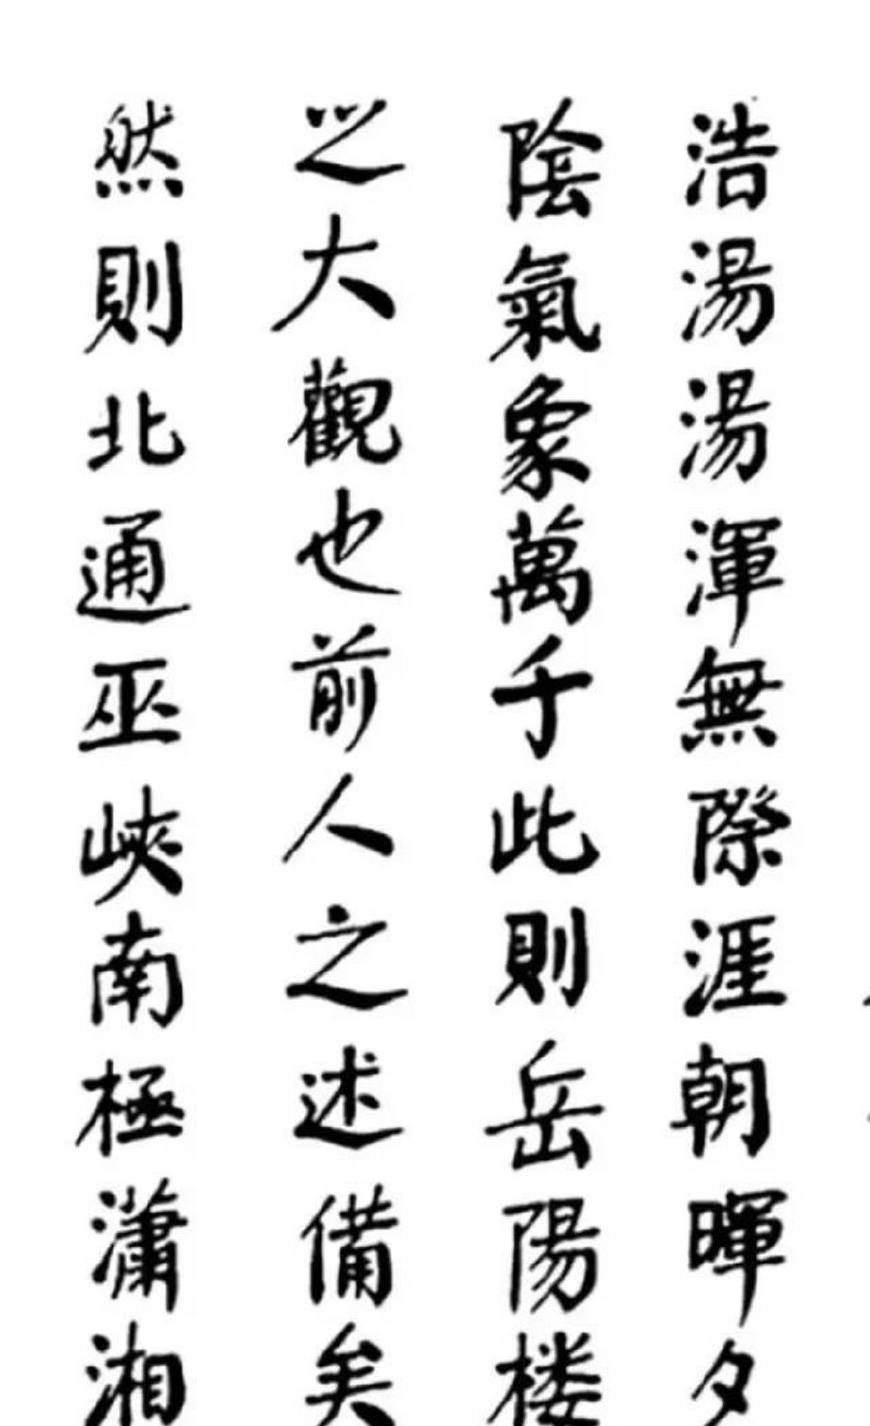 浩湯湯渾無際涯朝暉夕
陰氣象萬千此則岳陽楼
之大觀也前人之述備矣
然則北通巫峽南極瀟湘